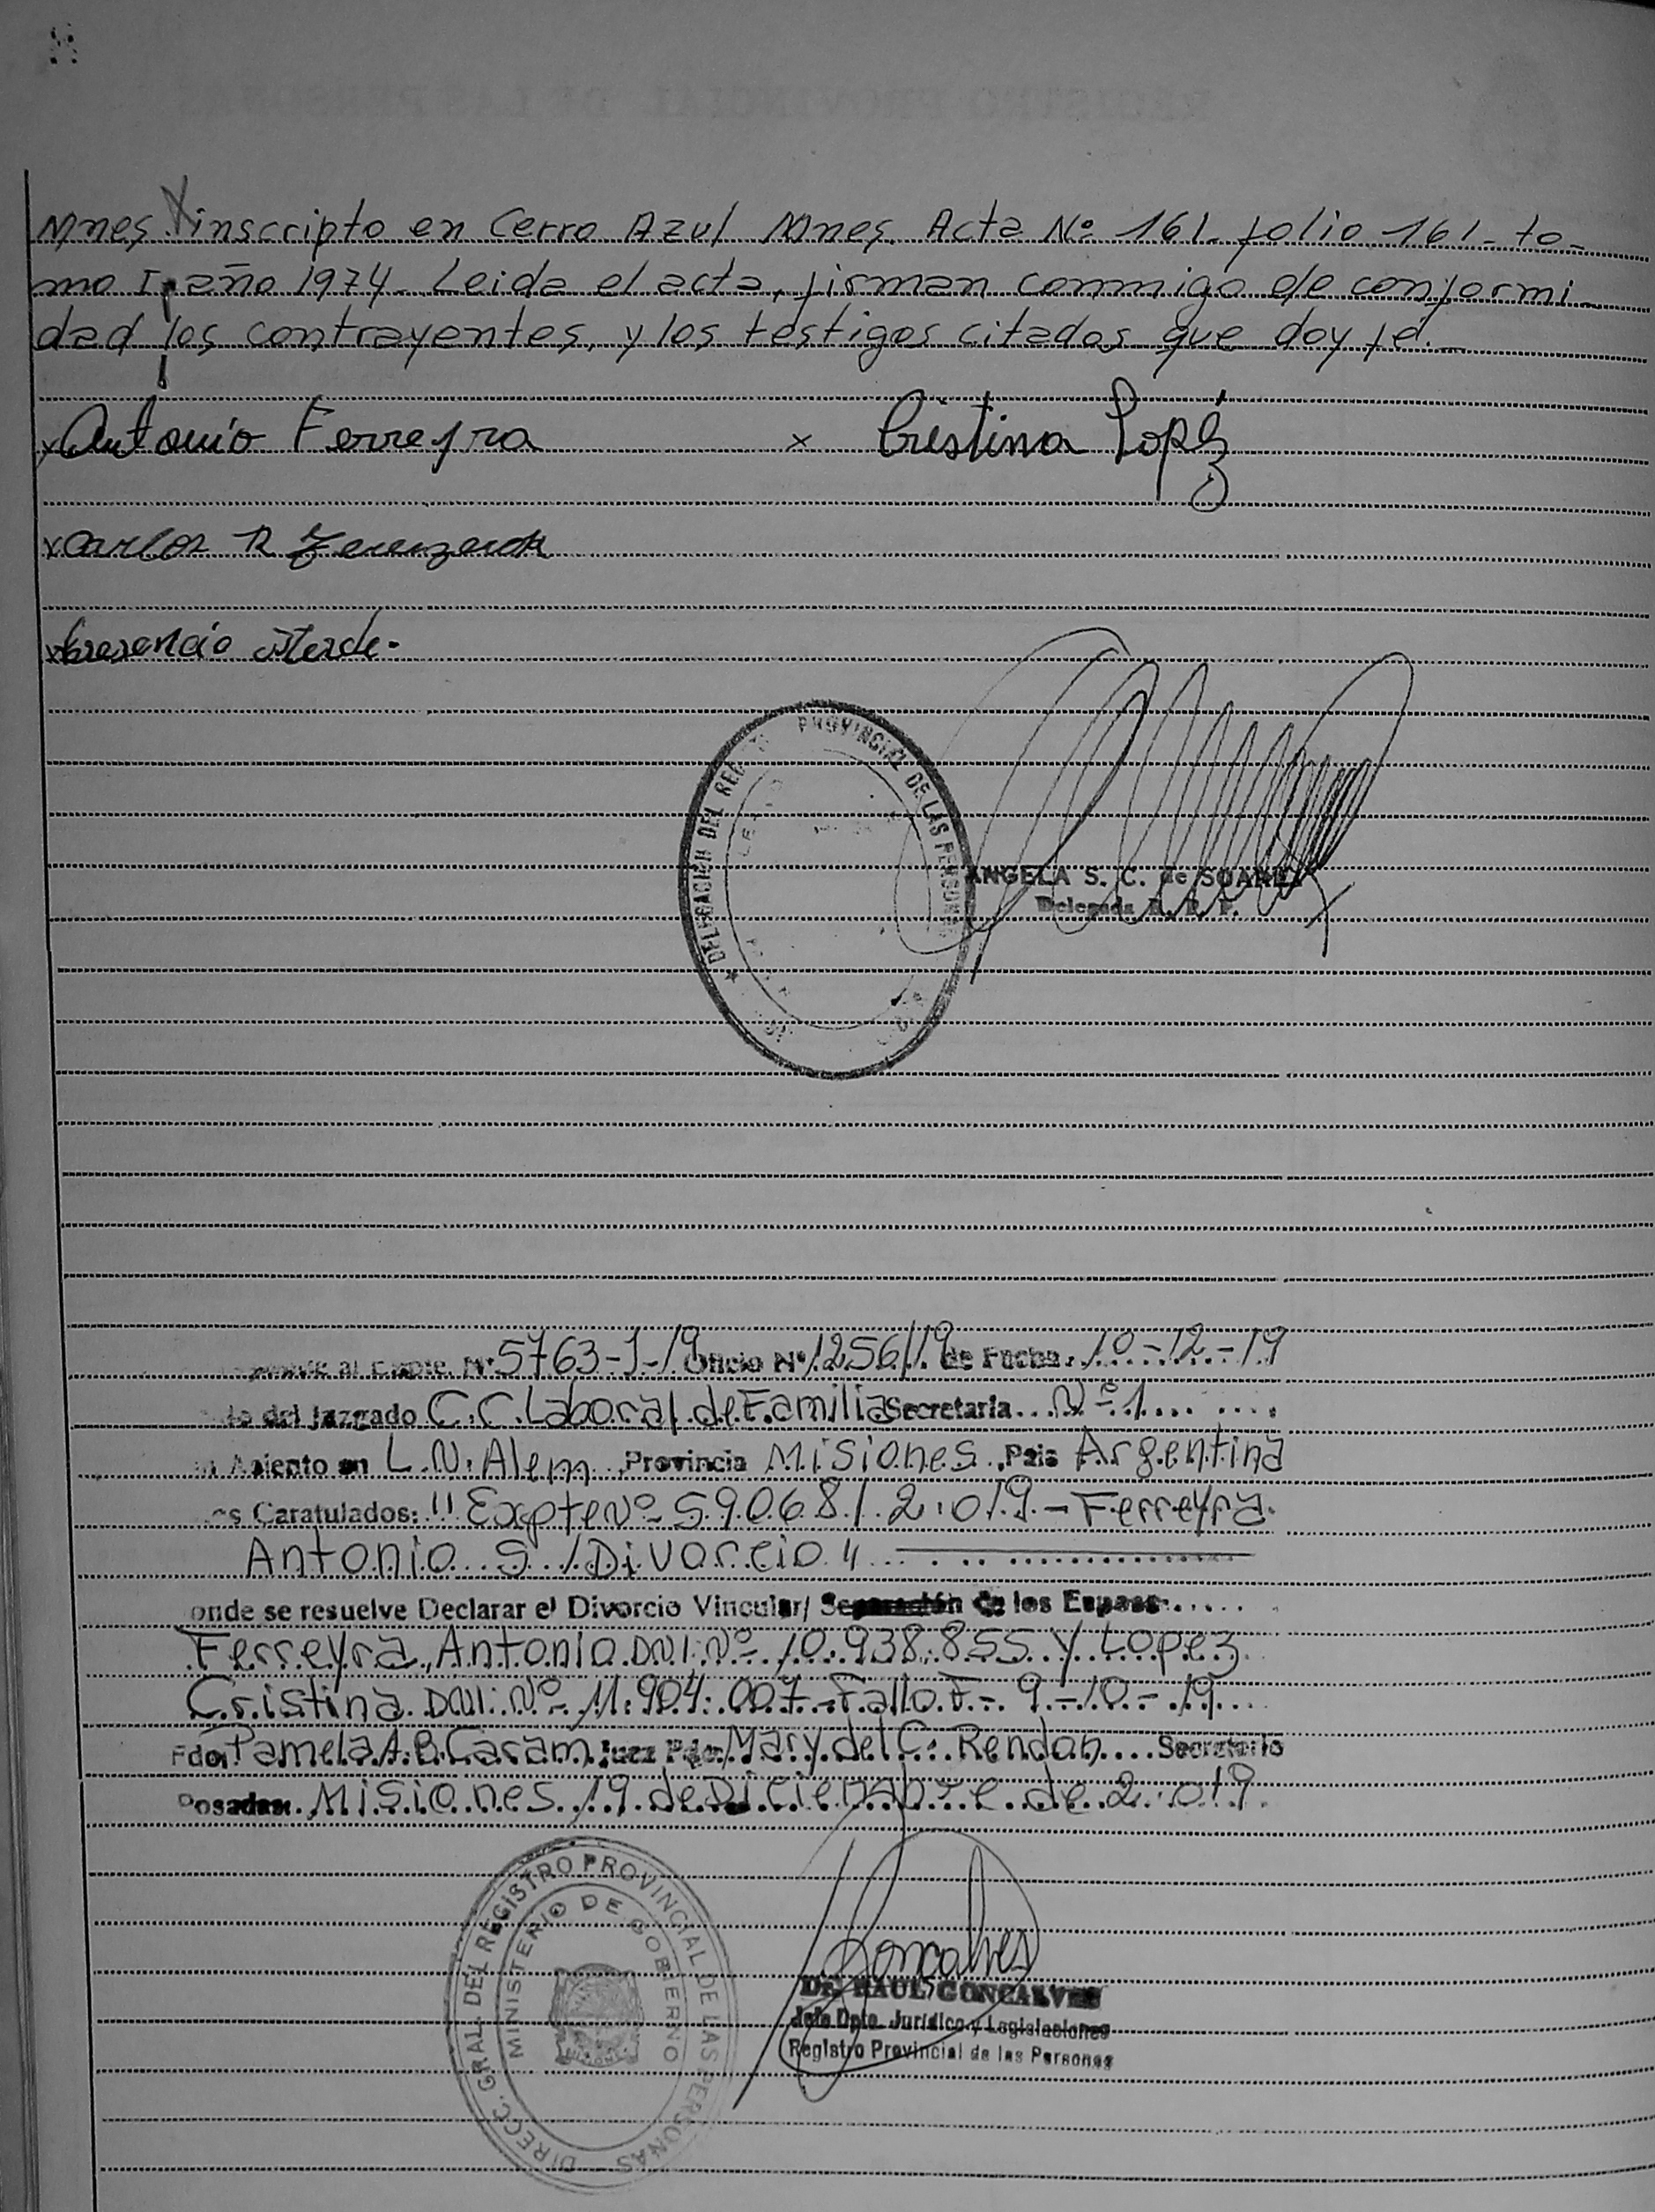 Mnes. inscripto en Cerro Azul Mnes. Acta Nº 161- folio 161- to-
mo I, año 1974- Leida el acta, firman conmigo de conformi-
dad los contrayentes, y los testigos citados que doy fé.-
x Antonio Ferreyra x Cristina Lopéz
x Carlos R
x
DELEGACION DEL REG PROVINCIAL DE LAS PERSONAS
ANGELA S. C. de SUAREZ
Delegada R. P. P.
al Expte. Nº 5763-J-19 Oficio Nº 1256/19 de Fecha 10-12-19
del Juzgado C.C. Laboral de Familia Secretaria Nº 1
Asiento en L.N. Alem Provincia Misiones Pais Argentina
os Caratulados: "Expte Nº 59068/2.019 - Ferreyra
Antonio S/Divorcio"
onde se resuelve Declarar el Divorcio Vincular/ Separación de los Esposos
Ferreyra, Antonio DNI. Nº 10.938.855 y Lopez
Cristina DNI. Nº 11.904.007 - Fallo F.- 9-10-19
Fdo. Pamela A.B. Caram Juez Pdo. Mary del C. Rendan Secretario
Posadas. Misiones 19 de Diciembre de 2.019
DIRECC. GRAL. DEL REGISTRO PROVINCIAL DE LAS PERSONAS
MINISTERIO DE GOBIERNO
Goncalves
Dr. RAUL GONCALVES
Jefe Dpto. Jurídico y Legislaciones
Registro Provincial de las Personas